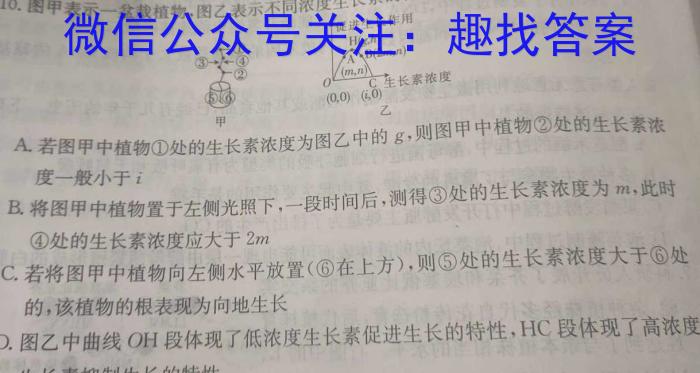 10. 图甲表示一盆栽植物,图乙表示不同浓度生长素的
微信公众号关注：趣找答案
促进生长作用
③ ④
②
⑤⑥
甲
H
A
B
(m,n)
O C 生长素浓度
(0,0) (i,0)
乙
A. 若图甲中植物①处的生长素浓度为图乙中的 g,则图甲中植物②处的生长素浓
度一般小于 i
B. 将图甲中植物置于左侧光照下,一段时间后,测得③处的生长素浓度为 m,此时
④处的生长素浓度应大于 2m
C. 若将图甲中植物向左侧水平放置(⑥在上方),则⑤处的生长素浓度大于⑥处
的,该植物的根表现为向地生长
D. 图乙中曲线 OH 段体现了低浓度生长素促进生长的特性,HC 段体现了高浓度
生长素抑制生长的特性